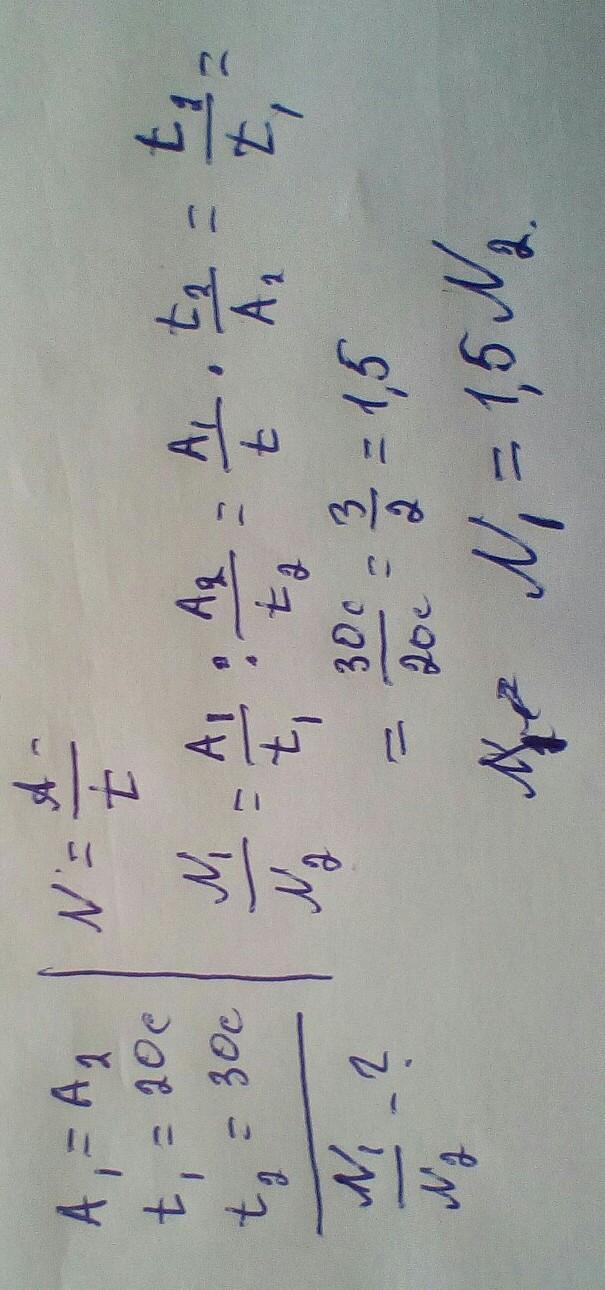 A₁ = A₂
t₁ = 20с
t₂ = 30с
N₁/N₂ - ?
N = A/t
N₁/N₂ = A₁/t₁ : A₂/t₂ = A₁/t · t₂/A₂ = t₂/t₁ =
= 30с/20с = 3/2 = 1,5
N₁ = 1,5 N₂.